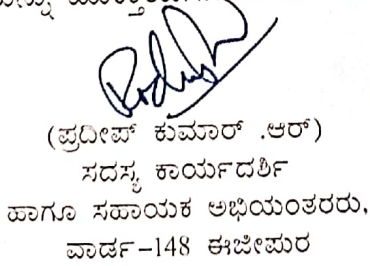 (ಪ್ರದೀಪ್ ಕುಮಾರ್ .ಆರ್)
ಸದಸ್ಯ ಕಾರ್ಯದರ್ಶಿ
ಹಾಗೂ ಸಹಾಯಕ ಅಭಿಯಂತರರು,
ವಾರ್ಡ-148 ಈಜೀಪುರ